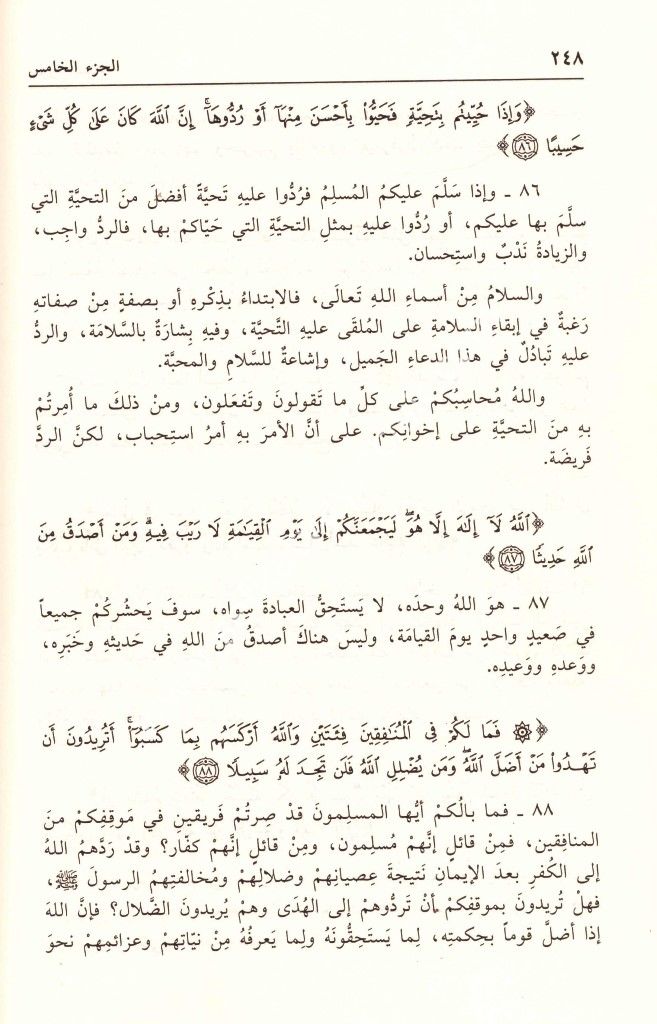 ٢٤٨
الجزء الخامس
﴿وَإِذَا حُيِّيتُم بِتَحِيَّةٍ فَحَيُّوا۟ بِأَحْسَنَ مِنْهَآ أَوْ رُدُّوهَآ ۗ إِنَّ ٱللَّهَ كَانَ عَلَىٰ كُلِّ شَىْءٍ
حَسِيبًا ﴿٨٦﴾﴾
٨٦ ـ وإذا سَلَّمَ عليكمُ المُسلِمُ فرُدُّوا عليهِ تَحيَّةً أفضلَ منَ التحيَّةِ التي
سلَّمَ بها عليكم، أو رُدُّوا عليهِ بمثلِ التحيَّةِ التي حَيّاكمْ بها، فالردُّ واجِب،
والزيادةُ نَدْبٌ واستِحسان.
والسلامُ مِنْ أسماءِ اللهِ تَعالَى، فالابتداءُ بذِكْرهِ أو بصفةٍ مِنْ صفاتهِ
رَغبةٌ في إبقاءِ السلامةِ على المُلقَى عليهِ التَّحيَّة، وفيهِ بِشارَةٌ بالسَّلامَة، والردُّ
عليهِ تَبادُلٌ في هذا الدعاءِ الجَميل، وإشاعةٌ للسَّلامِ والمحبَّة.
واللهُ مُحاسِبُكمْ على كلِّ ما تَقولونَ وتَفعَلون، ومنْ ذلكَ ما أُمِرتُمْ
بهِ منَ التحيَّةِ على إخوانِكم. على أنَّ الأمرَ بهِ أمرُ استِحباب، لكنَّ الردَّ
فَريضَة.
﴿ٱللَّهُ لَآ إِلَٰهَ إِلَّا هُوَ ۚ لَيَجْمَعَنَّكُمْ إِلَىٰ يَوْمِ ٱلْقِيَٰمَةِ لَا رَيْبَ فِيهِ ۗ وَمَنْ أَصْدَقُ مِنَ
ٱللَّهِ حَدِيثًا ﴿٨٧﴾﴾
٨٧ ـ هوَ اللهُ وحدَه، لا يَستَحِقُّ العبادةَ سِواه، سوفَ يَحشُركُمْ جميعاً
في صَعيدٍ واحدٍ يومَ القيامَة، وليسَ هناكَ أصدقُ منَ اللهِ في حَديثهِ وخَبَرِه،
ووَعدهِ ووَعيدِه.
﴿۞ فَمَا لَكُمْ فِى ٱلْمُنَٰفِقِينَ فِئَتَيْنِ وَٱللَّهُ أَرْكَسَهُم بِمَا كَسَبُوٓا۟ ۚ أَتُرِيدُونَ أَن
تَهْدُوا۟ مَنْ أَضَلَّ ٱللَّهُ ۖ وَمَن يُضْلِلِ ٱللَّهُ فَلَن تَجِدَ لَهُۥ سَبِيلًا ﴿٨٨﴾﴾
٨٨ ـ فما بالُكمْ أيُّها المسلِمونَ قدْ صِرتُمْ فَريقينِ في مَوقِفِكمْ منَ
المنافِقين، فمِنْ قائلٍ إنَّهمْ مُسلِمون، ومِنْ قائلٍ إنَّهمْ كفّار؟ وقدْ رَدَّهمُ اللهُ
إلى الكُفرِ بعدَ الإيمانِ نَتيجةَ عِصيانِهمْ وضَلالِهمْ ومُخالفتِهمُ الرسولَ ﷺ،
فهلْ تُريدونَ بموقفِكمْ أنْ تَردُّوهمْ إلى الهُدَى وهمْ يُريدونَ الضَّلال؟ فإنَّ اللهَ
إذا أضلَّ قوماً بحِكمتِه، لِما يَستَحِقُّونَهُ ولِما يَعرفُهُ مِنْ نيّاتِهمْ وعزائمِهمْ نحوَ